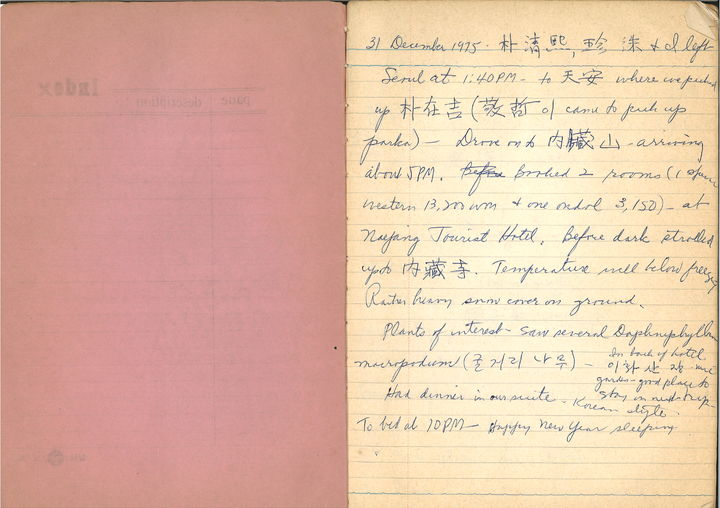 Index
page description
31 December 1975. 朴清熙, 珍洙 & I left
Seoul at 1:40PM - to 天安 where we picked
up 朴在吉 (敬哲이 came to pick up
parka) - Drove on to 内臟山 - arriving
about 5PM. Before booked 2 rooms (1
western 13,200 won & one ondol 3,150) - at
Naejang Tourist Hotel. Before dark strolled
up to 内藏寺. Temperature well below freezing
Rather heavy snow cover on ground.
Plants of interest - saw several Daphniphyllum
macropodum (굴거리 나무) -
In back of hotel
이화산장 nice
garden - good place to
stay in next trip
Korean style.
Had dinner in our suite -
To bed at 10PM - Happy New Year sleeping